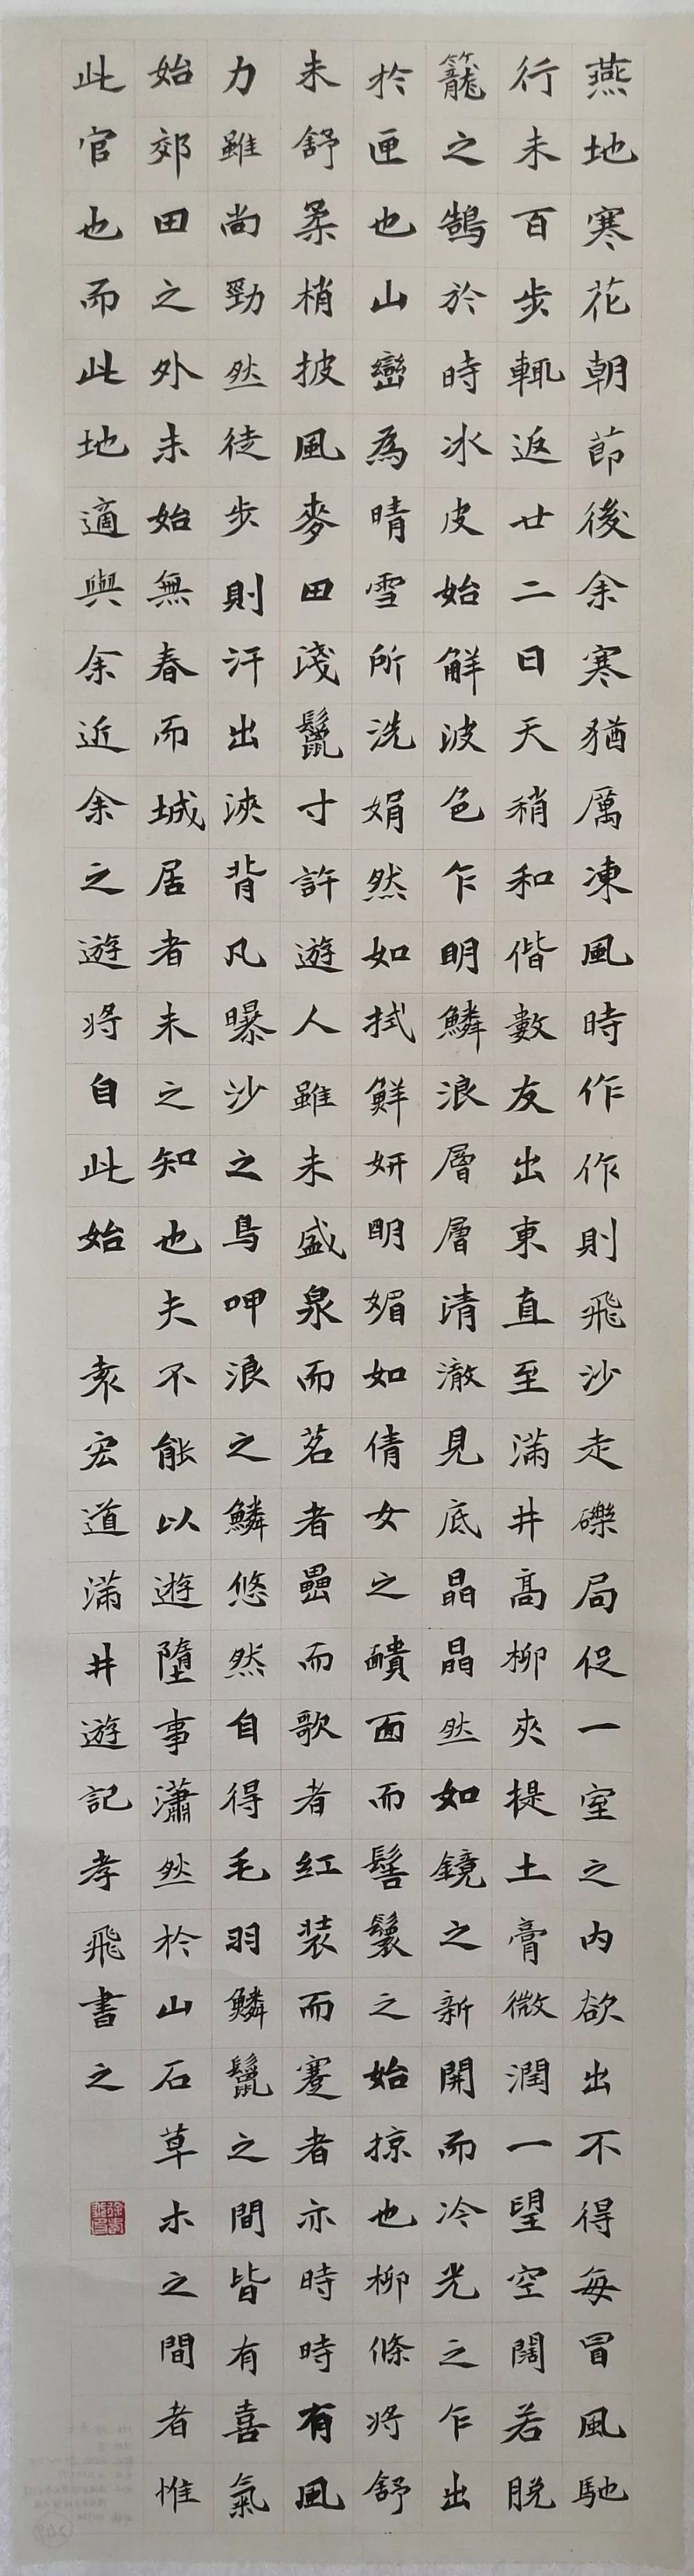 燕地寒花朝節後余寒猶厲凍風時作作則飛沙走礫局促一室之內欲出不得每冒風馳
行未百步輒返廿二日天稍和偕數友出東直至滿井高柳夾提土膏微潤一望空闊若脫
籠之鵠於時冰皮始解波色乍明鱗浪層層清澈見底晶晶然如鏡之新開而冷光之乍出
於匣也山巒為晴雪所洗娟然如拭鮮妍明媚如倩女之靧面而髻鬟之始掠也柳條將舒
未舒柔梢披風麥田淺鬣寸許遊人雖未盛泉而茗者罍而歌者紅裝而蹇者亦時時有風
力雖尚勁然徒步則汗出浹背凡曝沙之鳥呷浪之鱗悠然自得毛羽鱗鬣之間皆有喜氣
始郊田之外未始無春而城居者未之知也夫不能以遊墮事瀟然於山石草木之間者惟
此官也而此地適與余近余之遊將自此始 袁宏道滿井遊記孝飛書之